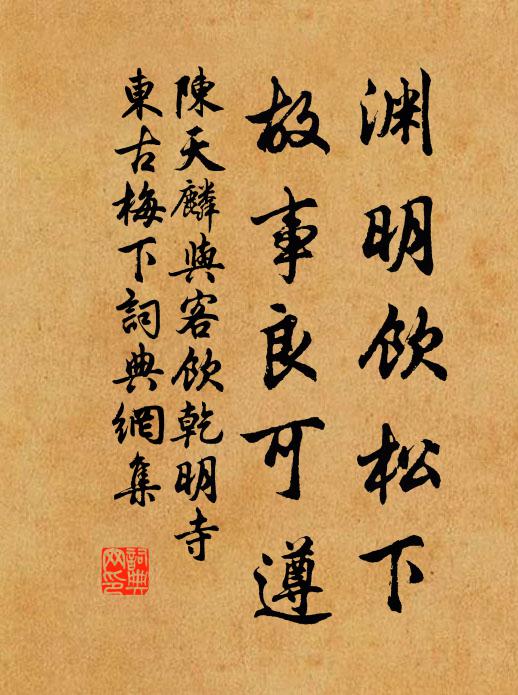 渊明飲松下
故事良可遵
陳天麟與客飲乾明寺
東古梅下詞典網集
詞典
网印